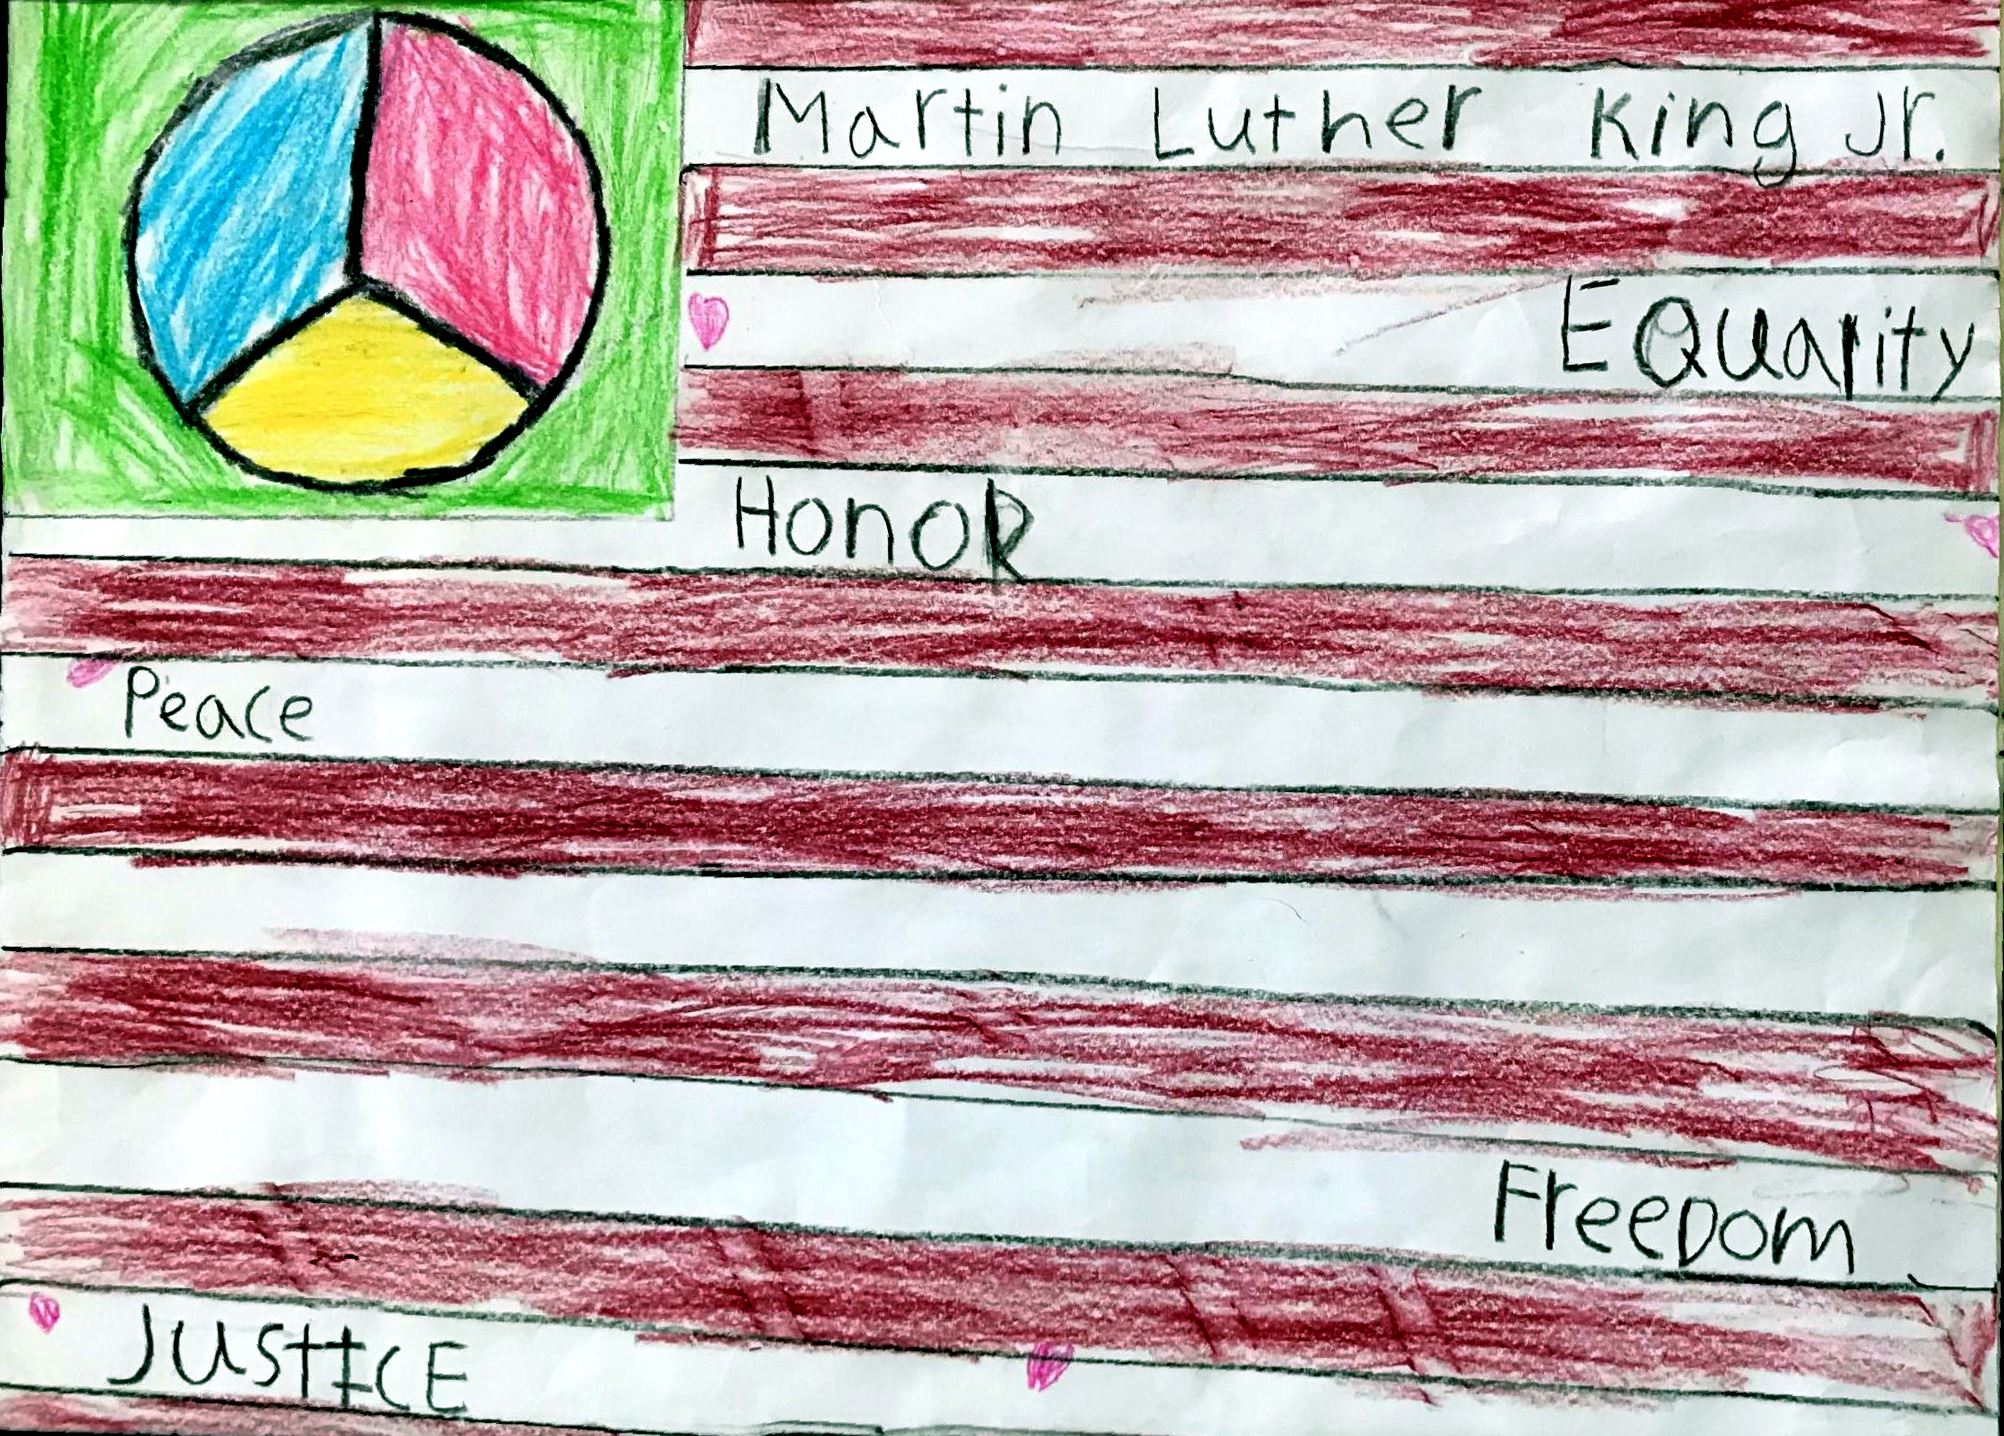 Martin Luther King Jr.
EQuality
HonoR
Peace
FreeDom
JUSTICE